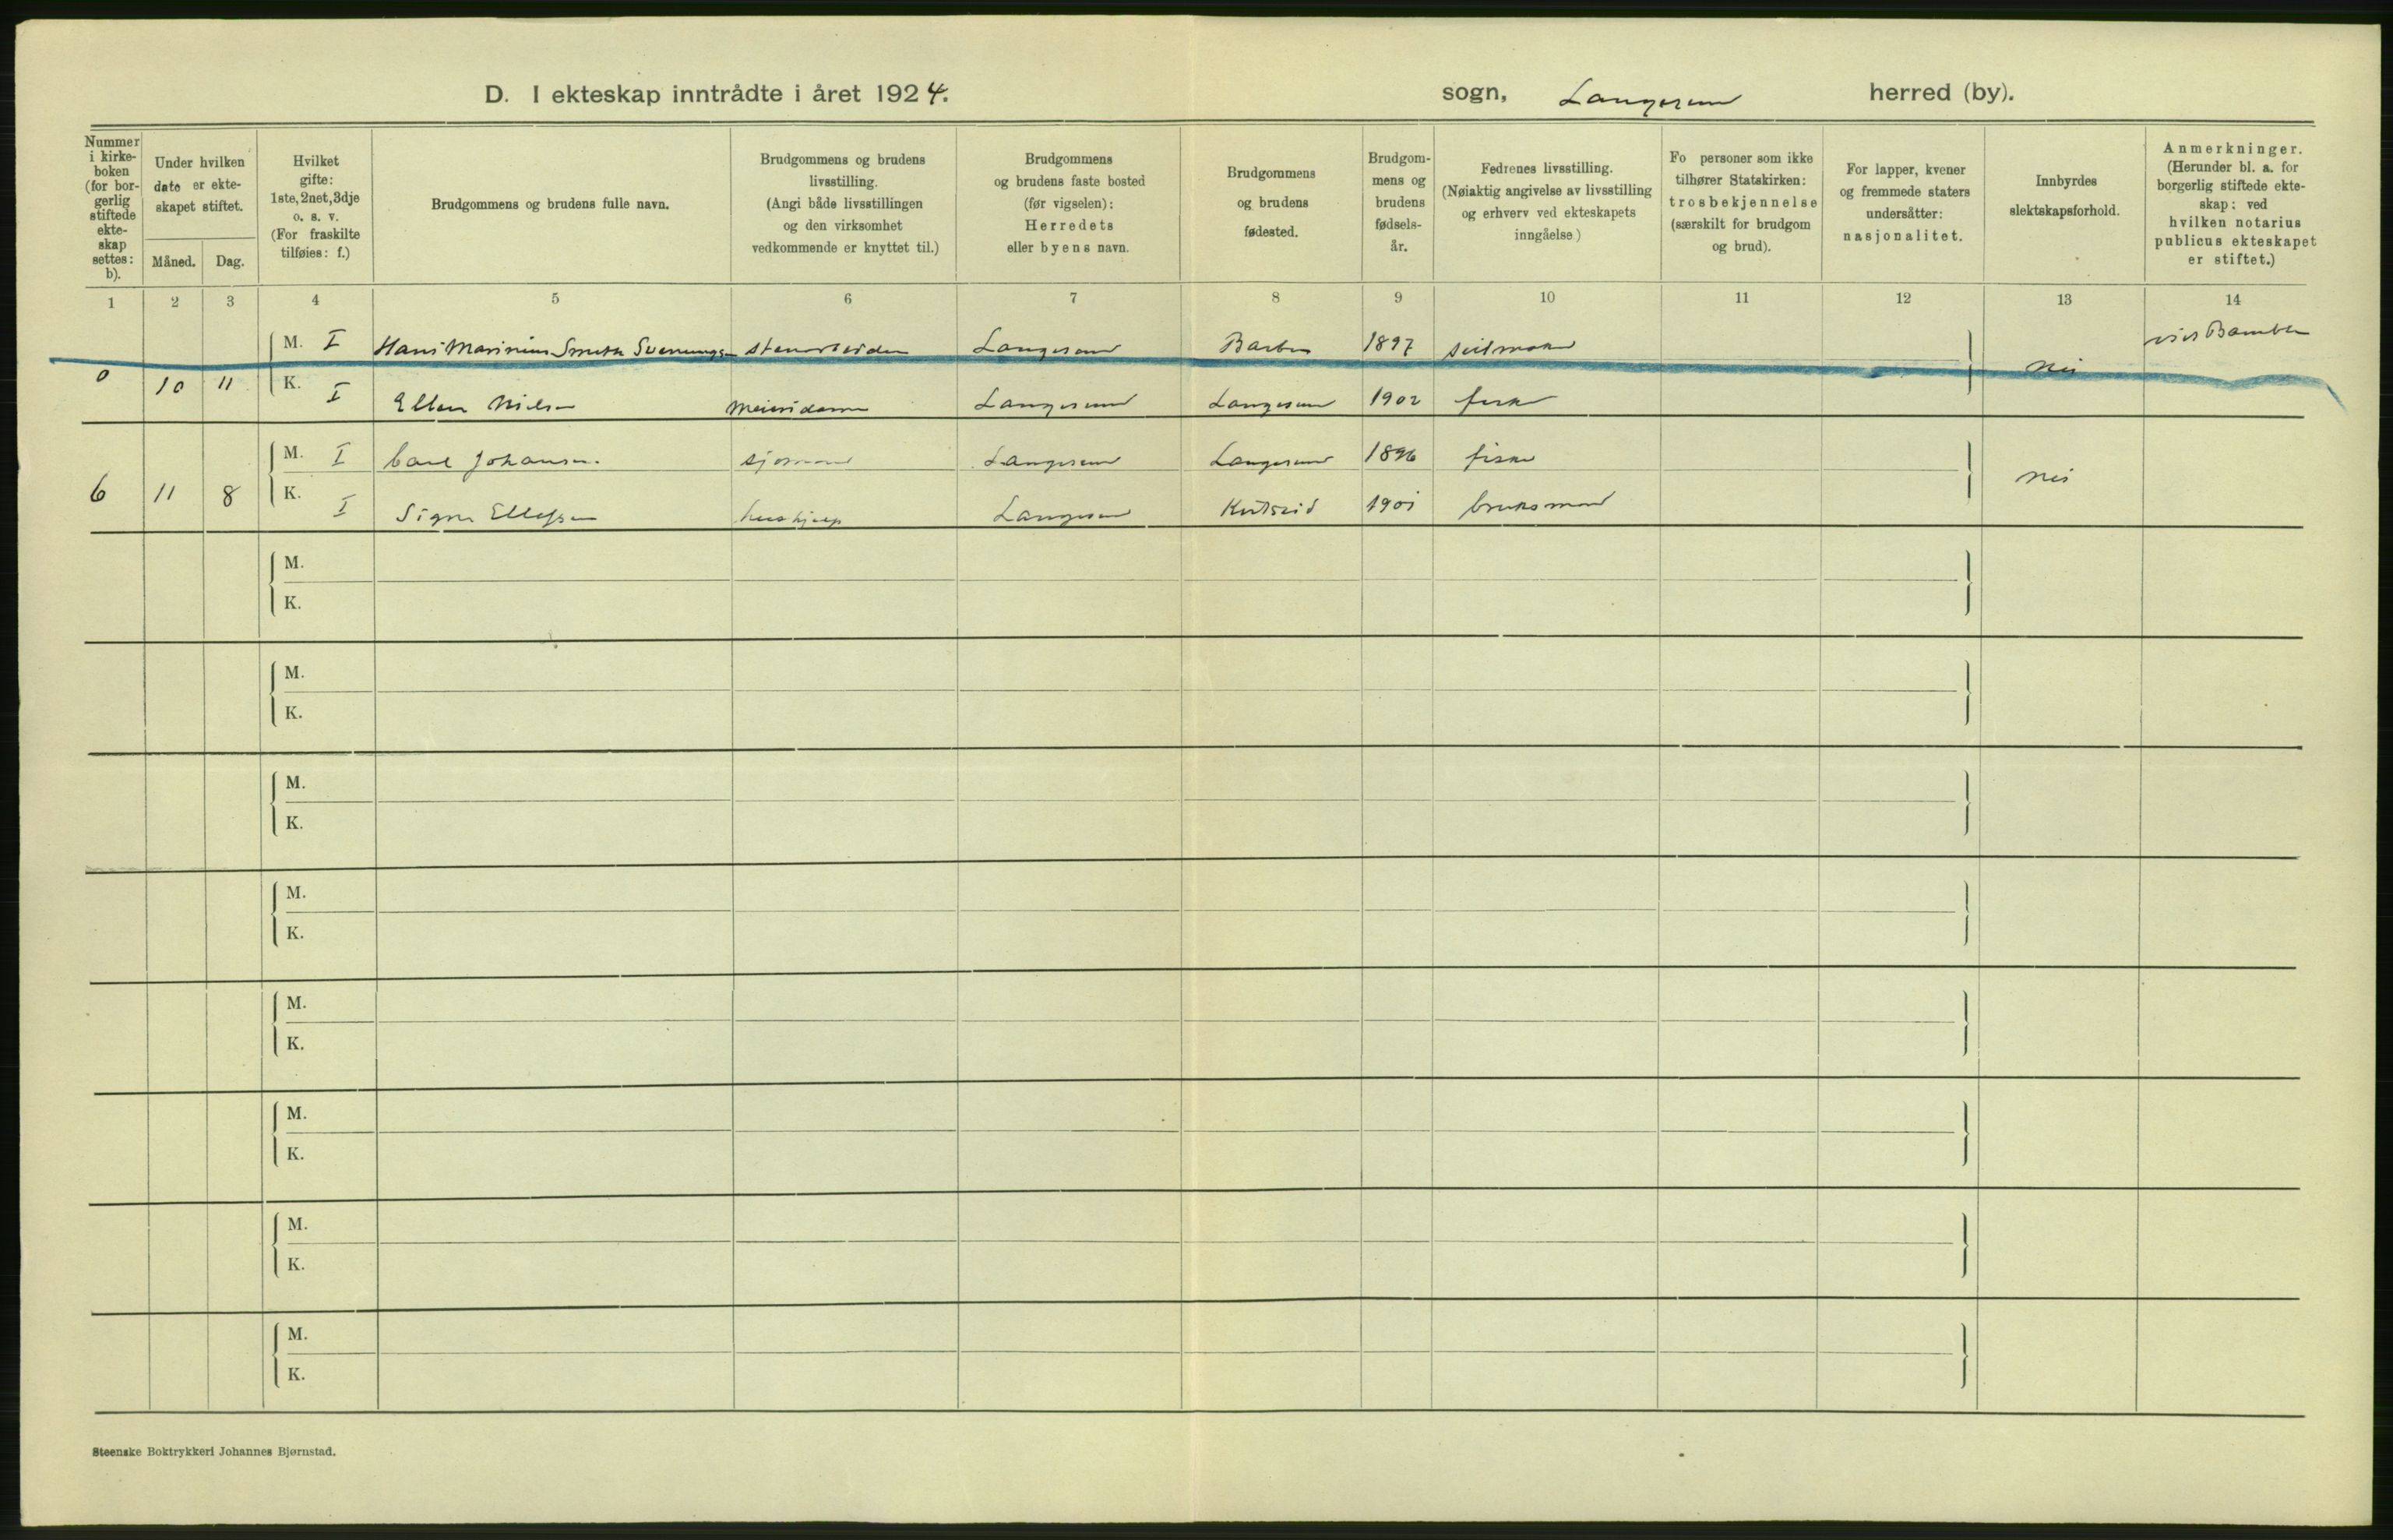 D. I ekteskap inntrådte i året 1924. sogn, Langesund herred (by).
Nummer i kirke- boken (for bor- gerlig stiftede ekte- skap settes: b).
Under hvilken dato er ekte- skapet stiftet.
Måned. Dag.
Hvilket gifte: 1ste, 2net, 3dje o. s. v. (For fraskilte tilføies: f.)
Brudgommens og brudens fulle navn.
Brudgommens og brudens livsstilling. (Angi både livsstillingen og den virksomhet vedkommende er knyttet til.)
Brudgommens og brudens faste bosted (før vigselen): Herredets eller byens navn.
Brudgommens og brudens fødested.
Brudgom- mens og brudens fødsels- år.
Fedrenes livsstilling. (Nøiaktig angivelse av livsstilling og erhverv ved ekteskapets inngåelse)
Fo personer som ikke tilhører Statskirken: trosbekjennelse (særskilt for brudgom og brud).
For lapper, kvener og fremmede staters undersåtter: nasjonalitet.
Innbyrdes slektskapsforhold.
Anmerkninger. (Herunder bl. a. for borgerlig stiftede ekte- skap: ved hvilken notarius publicus ekteskapet er stiftet.)
1 2 3 4 5 6 7 8 9 10 11 12 13 14
M. I Hans Marinius Smith Svenungsen stenarbeider Langesund Barbu 1897 seilmaker viet Bamble
0 10 11 K. I Ellen Nielsen meieridame Langesund Langesund 1902 fisker Nei
M. I Carl Johansen. sjømand Langesund Langesund 1896 fisker
6 11 8 K. I Signe Ellefsen hushjelp Langesund Kilsrid 1901 bruksmand Nei
M.
K.
M.
K.
M.
K.
M.
K.
M.
K.
M.
K.
M.
K.
M.
K.
Steenske Boktrykkeri Johannes Bjørnstad.